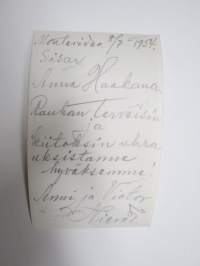 Montevideo 8/2 - 1954.
Sisar
Anna Haakana
Rauhan Terveisin
ja
kiitoksin uhra
uksistanne
hyväksemme!
Anni ja Victor
Niemi